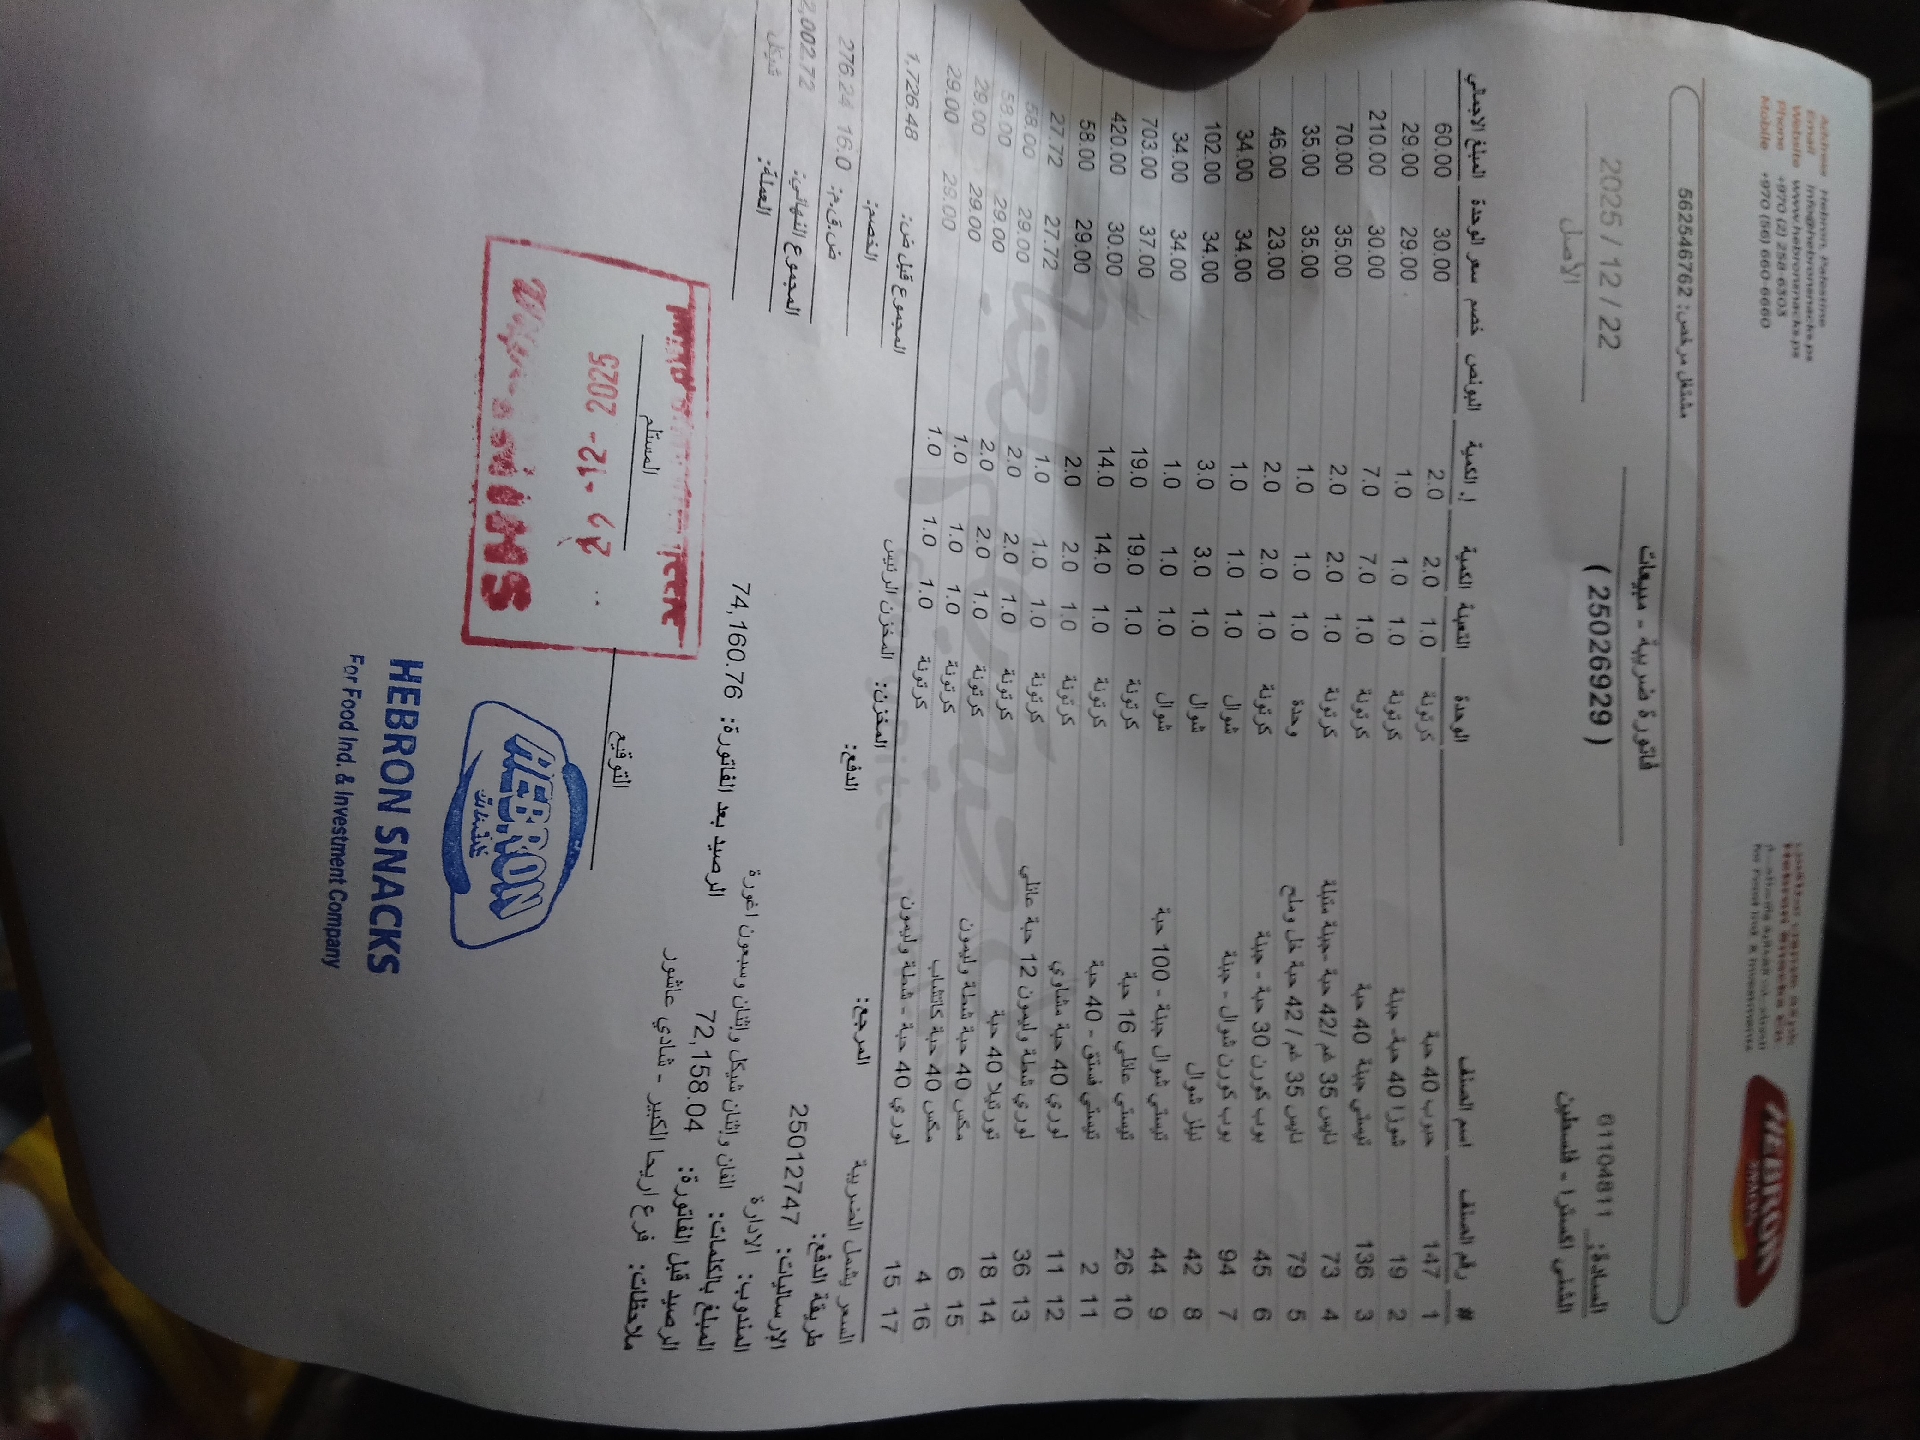 HEBRON
SNACKS
Address Hebron, Palestine
Email info@hebronsnacks.ps
Website www.hebronsnacks.ps
Phone +970 (2) 258 6303
Mobile +970 (56) 660 6660
مشتغل مرخص: 562546762
فاتورة ضريبية - مبيعات
( 25026929 )
السادة: 81104811
الشني اكسترا - فلسطين
2025 / 12 / 22
الأصل
# رقم الصنف اسم الصنف الوحدة التعبئة الكمية إ. الكمية البونص خصم سعر الوحدة المبلغ الاجمالي
1 147 حبوب 40 حبة كرتونة 1.0 2.0 2.0 30.00 60.00
2 19 شورزا 40 حبة- جبنة كرتونة 1.0 1.0 1.0 29.00 29.00
3 136 تيستي جبنة 40 حبة كرتونة 1.0 7.0 7.0 30.00 210.00
4 73 نايس 35 غم /42 حبة -جبنة متبلة كرتونة 1.0 2.0 2.0 35.00 70.00
5 79 نايس 35 غم / 42 حبة خل وملح وحدة 1.0 1.0 1.0 35.00 35.00
6 45 بوب كورن 30 حبة - جبنة كرتونة 1.0 2.0 2.0 23.00 46.00
7 94 بوب كورن شوال - جبنة شوال 1.0 1.0 1.0 34.00 34.00
8 42 نيلز شوال شوال 1.0 3.0 3.0 34.00 102.00
9 44 تيستي شوال جبنة - 100 حبة شوال 1.0 1.0 1.0 34.00 34.00
10 26 تيستي عائلي 16 حبة كرتونة 1.0 19.0 19.0 37.00 703.00
11 2 تيستي فستق - 40 حبة كرتونة 1.0 14.0 14.0 30.00 420.00
12 11 لوري 40 حبة مشاوي كرتونة 1.0 2.0 2.0 29.00 58.00
13 36 لوري شطة وليمون 12 حبة عائلي كرتونة 1.0 1.0 1.0 27.72 27.72
14 18 تورتيلا 40 حبة كرتونة 1.0 2.0 2.0 29.00 58.00
15 6 مكس 40 حبة شطة وليمون كرتونة 1.0 2.0 2.0 29.00 58.00
16 4 مكس 40 حبة كاتشاب كرتونة 1.0 1.0 1.0 29.00 29.00
17 15 لوري 40 حبة - شطة وليمون كرتونة 1.0 1.0 1.0 29.00 29.00
السعر يشمل الضريبة المرجع: المخزن: المخزن الرئيس المجموع قبل ض: 1,726.48
طريقة الدفع: الدفع: الخصم:
الإرساليات: 25012747 ض.ق.م: 16.0 276.24
المندوب: الادارة المجموع النهائي: 2,002.72
المبلغ بالكلمات: الفان واثنان شيكل واثنان وسبعون اغورة العملة: شيكل
الرصيد قبل الفاتورة: 72,158.04 الرصيد بعد الفاتورة: 74,160.76
ملاحظات: فرع اريحا الكبير - شادي عاشور
التوقيع
المستلم
-12- 2025
HEBRON
HEBRON SNACKS
For Food Ind. & Investment Company